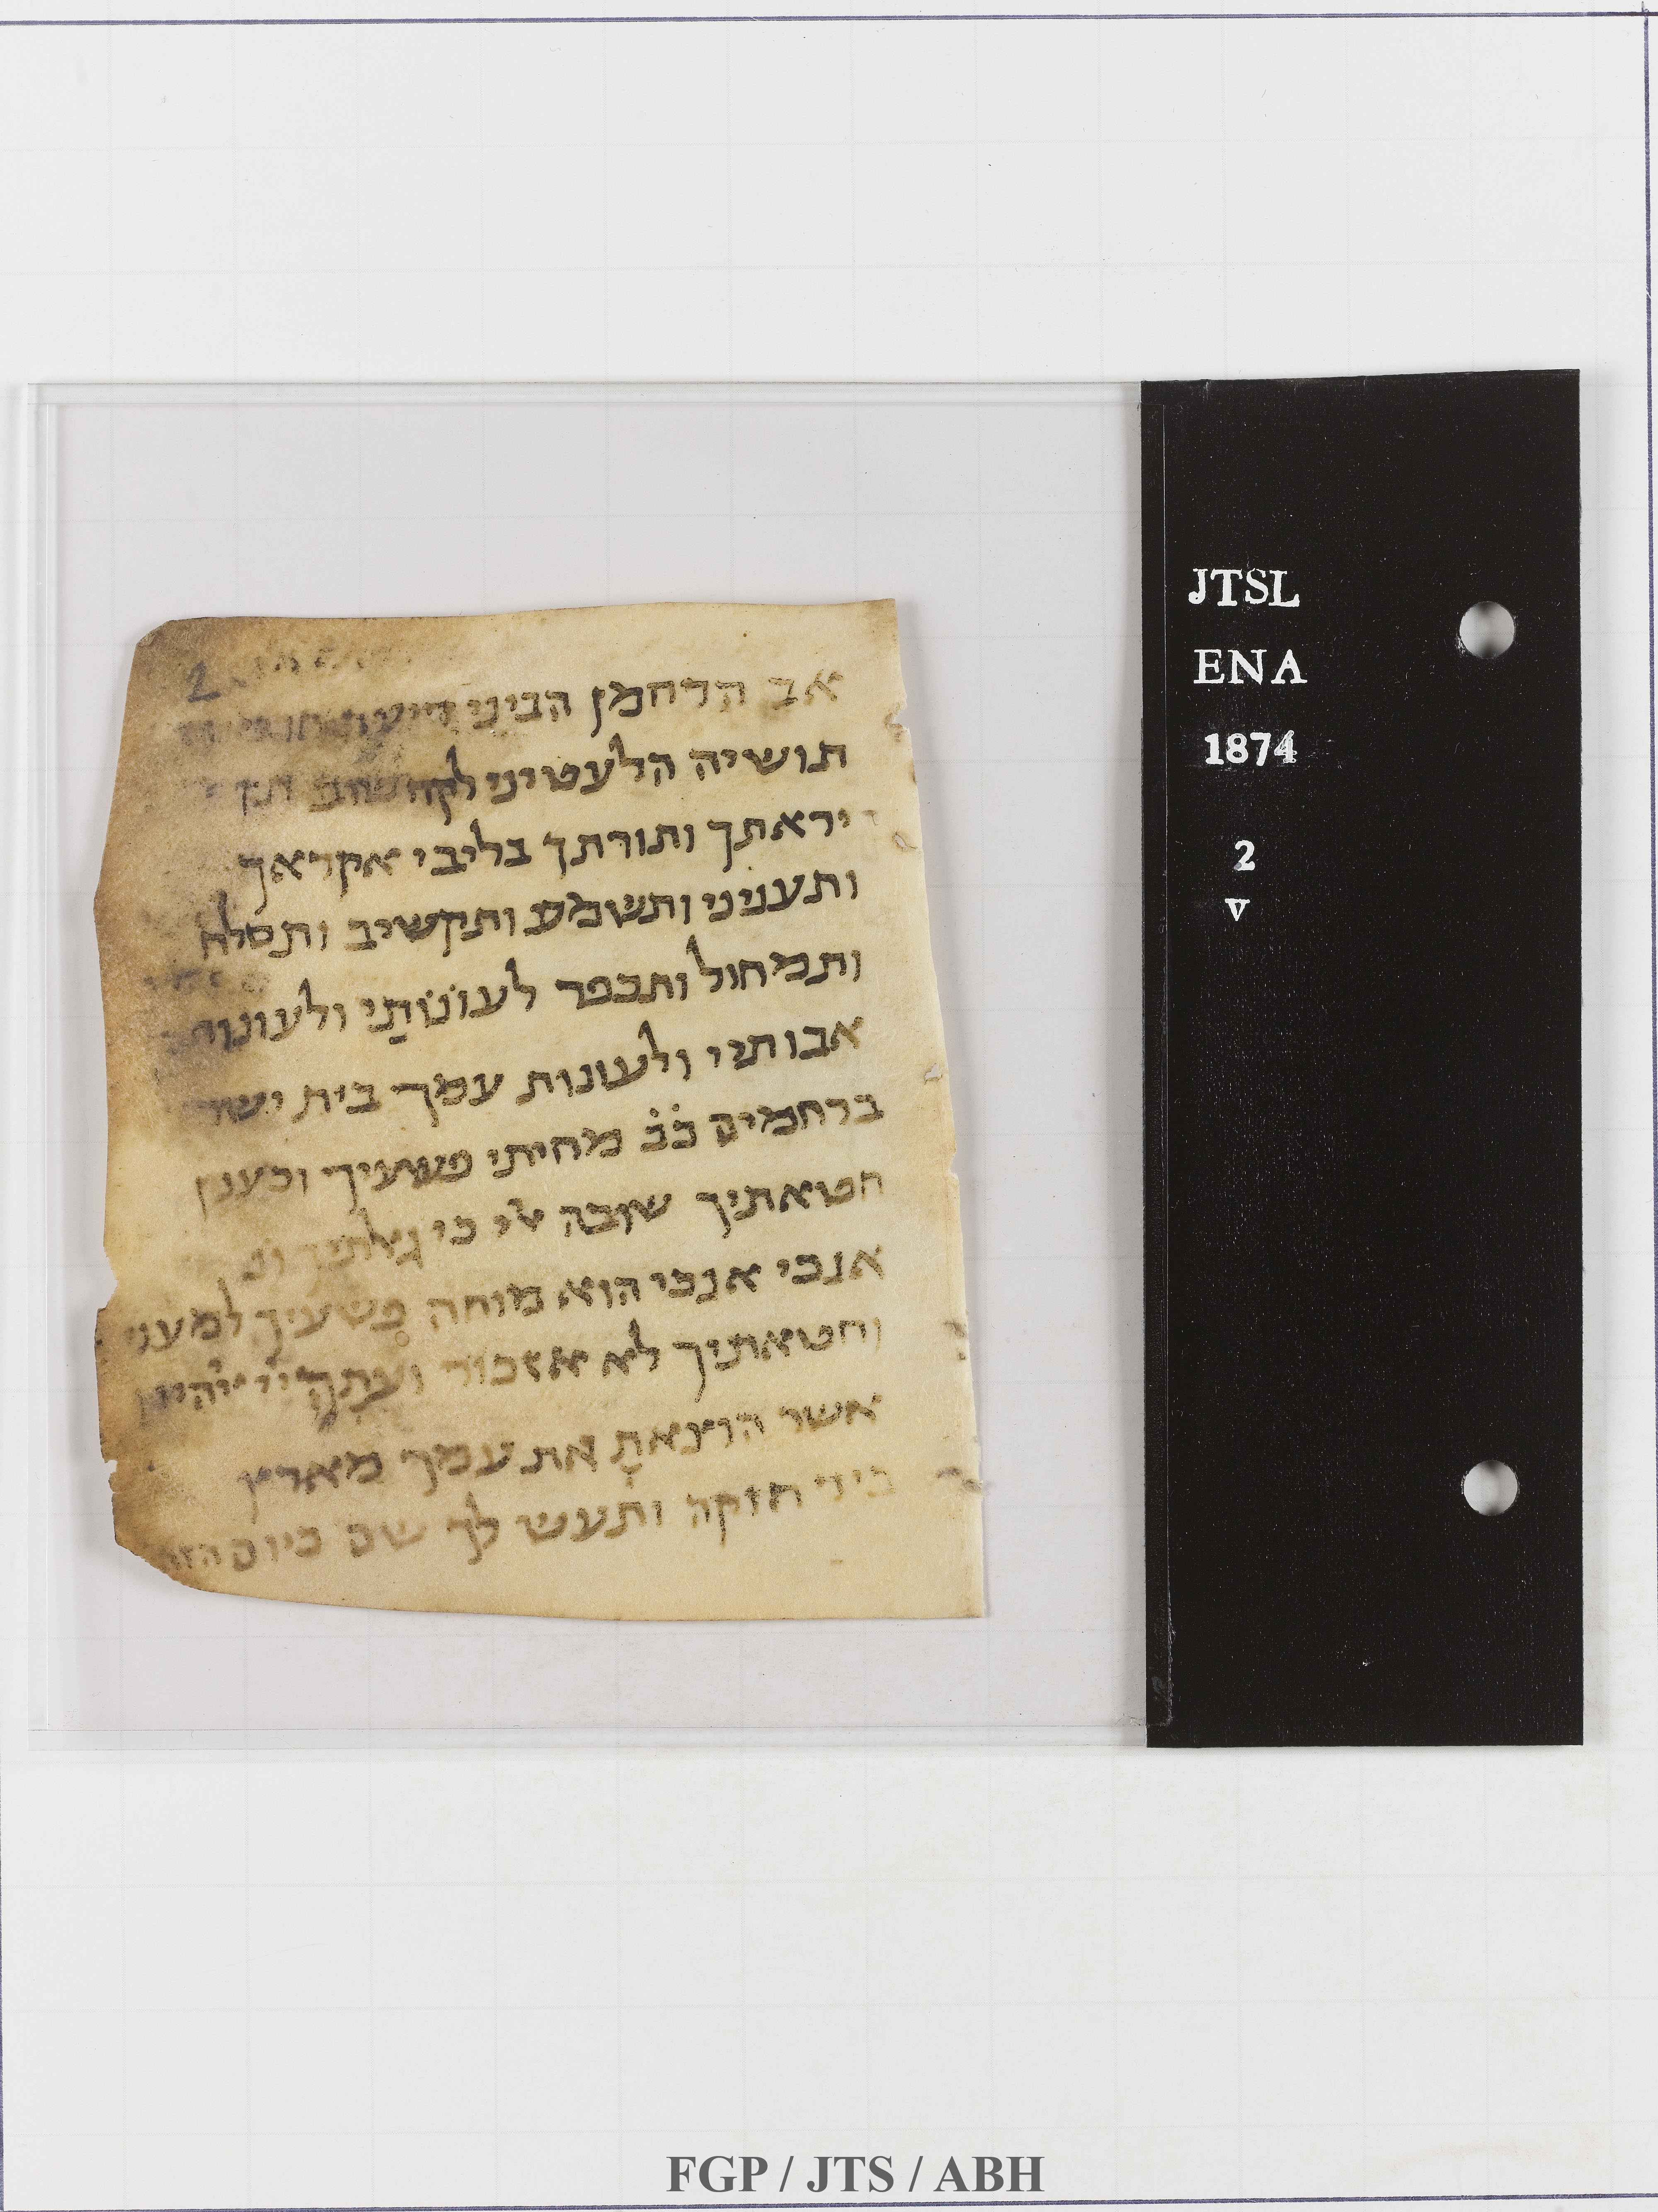 2
אב הרחמן הביני
תושיה הלעטיני
יראתך ותורתך בליבי אקראך
ותעניני ותשמע ותקשיב ותסלח
ותמחול ותכפר לעונותי ולעונות
אבותיי ולעונות עמך בית ישר
ברחמים ככ מחיתי פשעיך וכענן
חטאתיך שובה אלי כי גאלתיך
אנכי אנכי הוא מוחה פשעיך למעני
וחטאתיך לא אזכור ועתה ייי אלהינו
אשר הוצאת את עמך מארץ
ביד חזקה ותעש לך שם כיום הזה
JTSL
ENA
1874
2
V
FGP / JTS / ABH